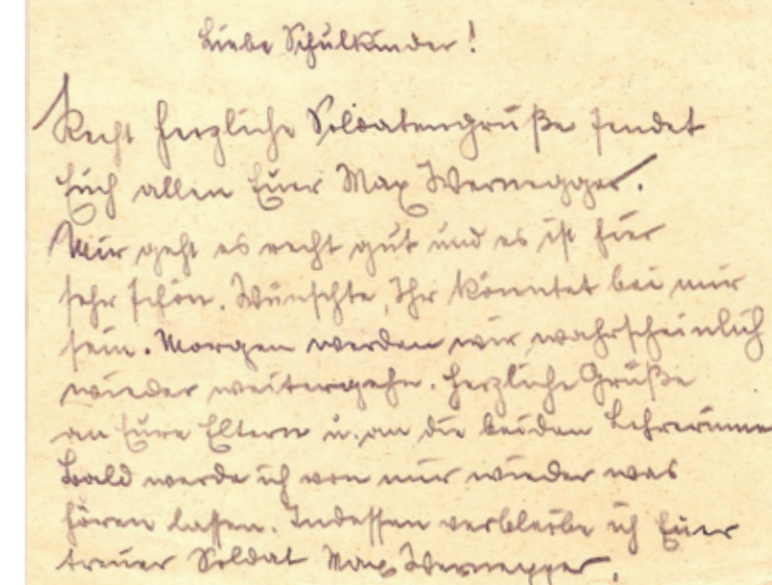 Liebe Schulkinder!
Recht herzliche Soldatengrüße sendet
Euch allen Euer Max Wernegger.
Mir geht es recht gut und es ist hier
sehr schön. Wünschte, Ihr könntet bei mir
sein. Morgen werden wir wahrscheinlich
wieder weitergehn. Herzliche Grüße
an Eure Eltern u. an die beiden Lehrerinnen
Bald werde ich von mir wieder was
hören lassen. Indessen verbleibe ich Euer
treuer Soldat Max Wernegger.